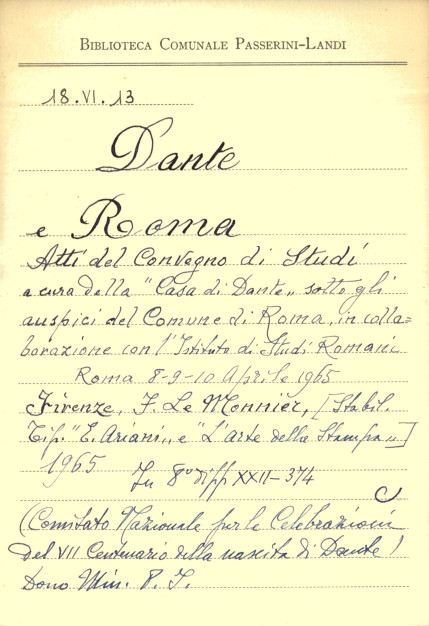 BIBLIOTECA COMUNALE PASSERINI-LANDI
18.VI.13
Dante
e Roma
Atti del Convegno di Studi
a cura della "Casa di Dante„ sotto gli
auspici del Comune di Roma, in colla=
borazione con l'Istituto di Studi Romani.
Roma 8-9-10 Aprile 1965
Firenze, F. Le Monnier, [Stabil.
Tip. "E. Ariani„ e "L'Arte della Stampa„]
1965 In 8º di pp XXII-374
(Comitato Nazionale per le Celebrazioni
del VII Centenario della nascita di Dante)
Dono Min. P. I.